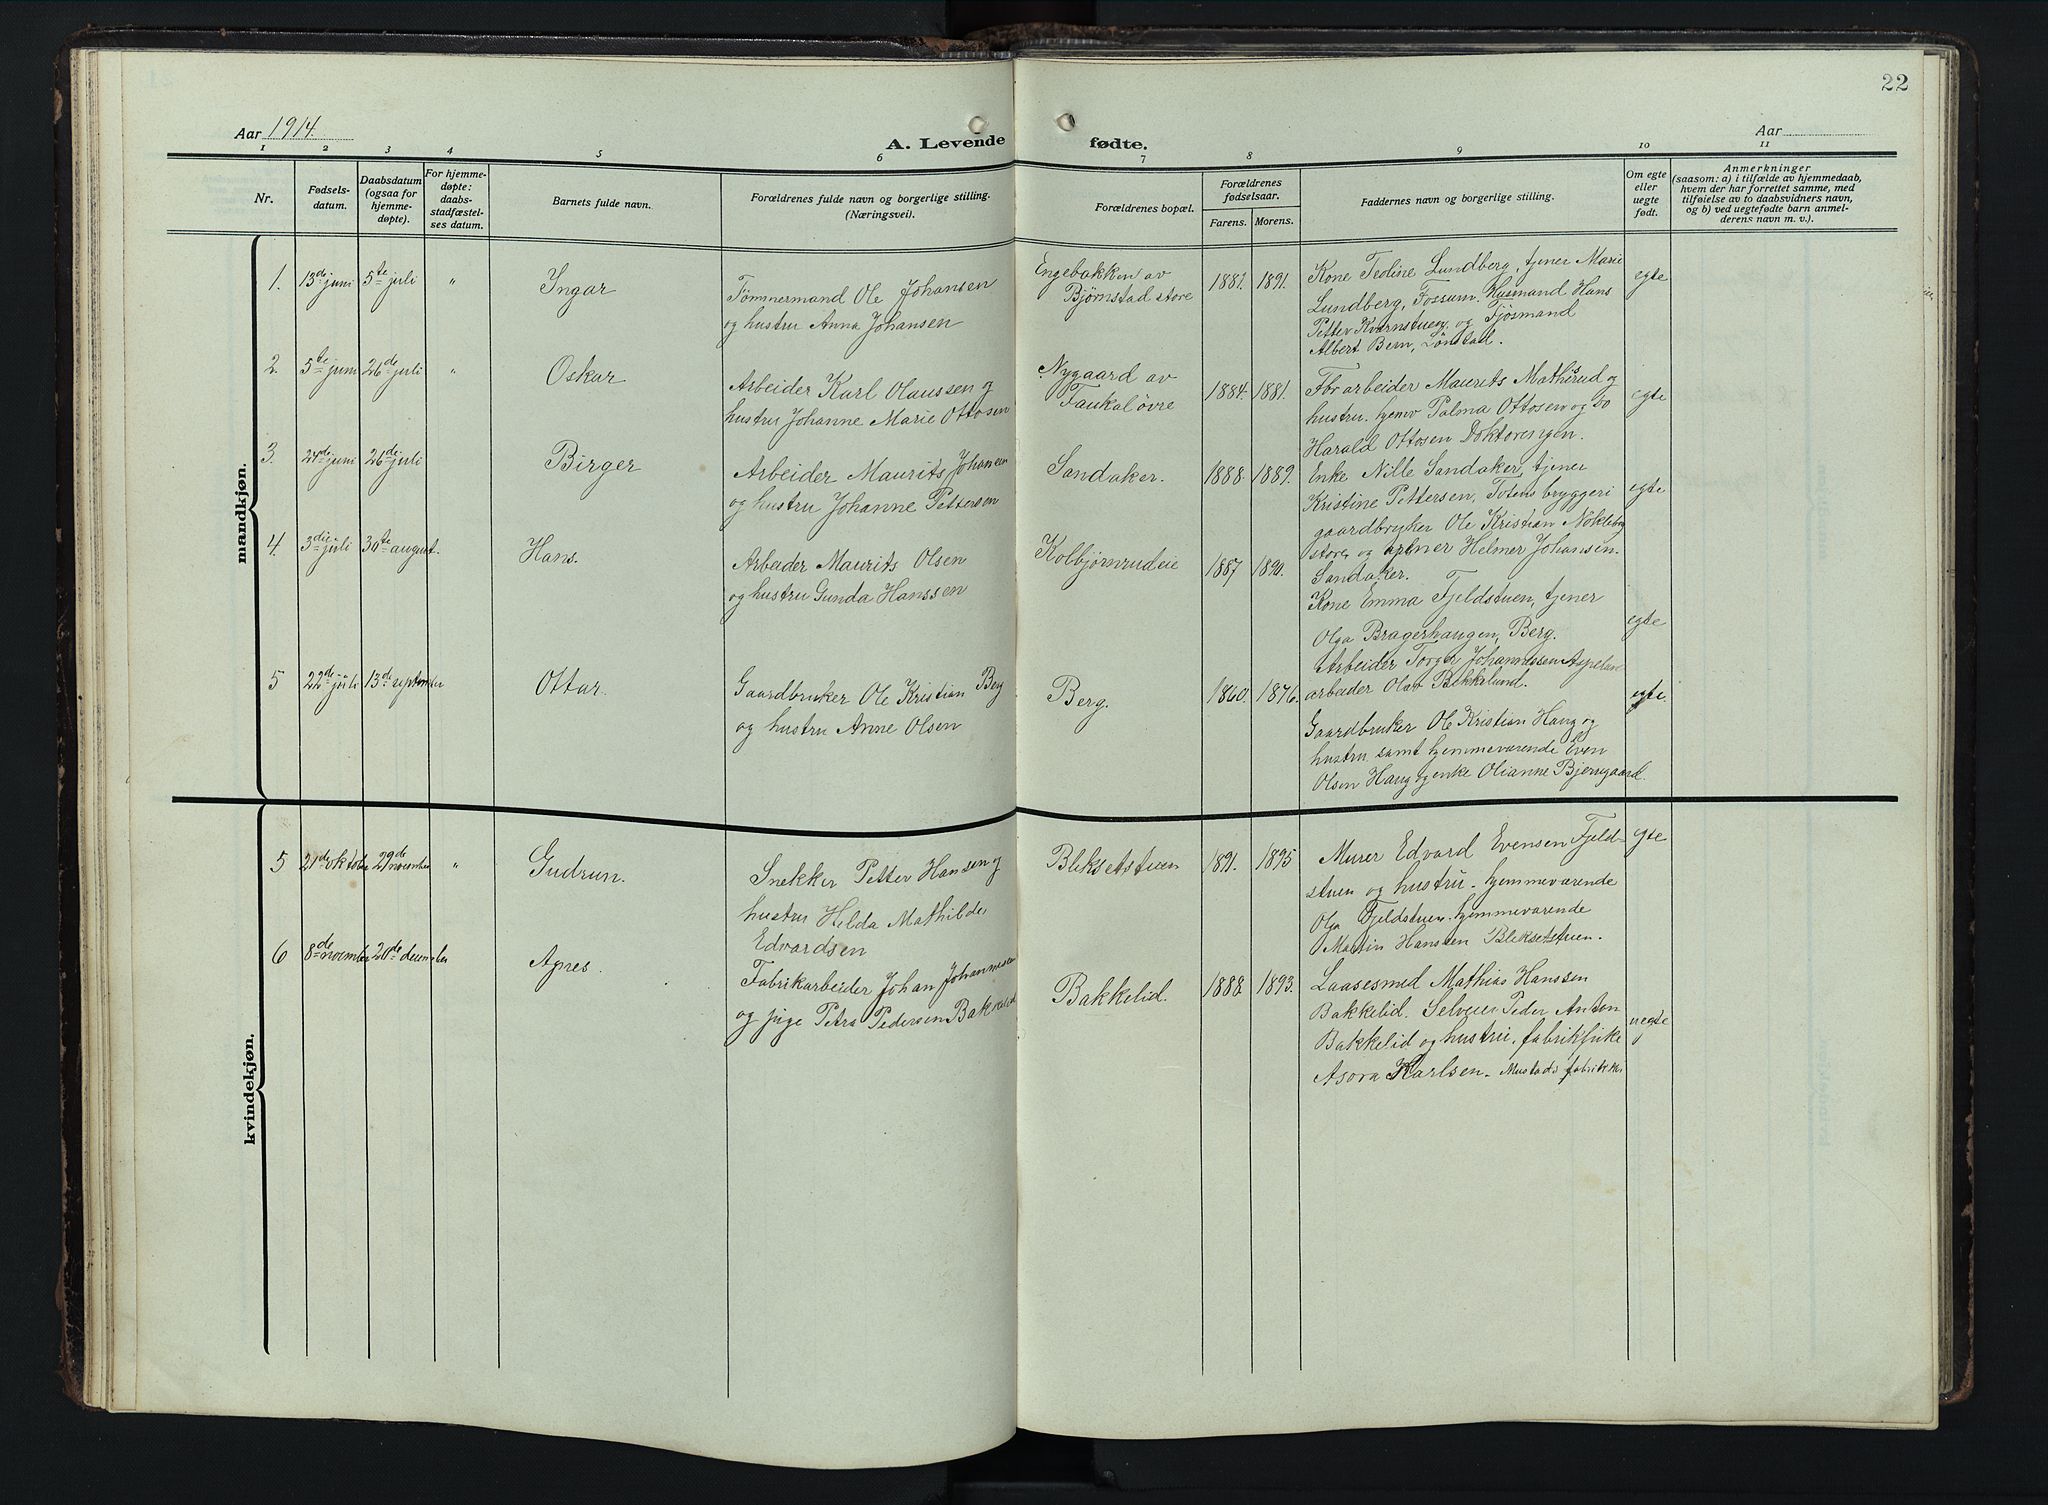 22
Aar 1914.
A. Levende fødte.
Aar
1 2 3 4 5 6 7 8 9 10 11
Nr.
Fødsels-
datum.
Daabsdatum
(ogsaa for
hjemme-
døpte).
For hjemme-
døpte:
daabs-
stadfæstel-
ses datum.
Barnets fulde navn.
Forældrenes fulde navn og borgerlige stilling.
(Næringsvei).
Forældrenes bopæl.
Forældrenes
fødselsaar.
Farens. Morens.
Faddernes navn og borgerlige stilling.
Om egte
eller
uegte
født.
Anmerkninger
(saasom: a) i tilfælde av hjemmedaab,
hvem der har forrettet samme, med
tilføielse av to daabsvidners navn,
og b) ved uegtefødte barn anmel-
derens navn m. v.).
mandkjøn.
1. 13de juni 5te juli " Ingar
Tømmermand Ole Johansen
og hustru Anna Johansen
Engebakken av
Bjørnstad store
1887. 1891.
Kone Teoline Lundberg, tjener Marie
Lundberg, Fossum. Husmand Hans
Petter Kvernstuen, og Fjøsmand
Albert Bern, Lønstad.
egte
2. 5te juni 26de juli " Oskar
Arbeider Karl Olaussen og
hustru Johanne Marie Ottosen
Nygaard av
Faukal øvre
1884. 1881.
Fbr arbeider Maurits Mathisrud og
hustru. hjemv Palma Ottosen og do
Harald Ottosen Doktorengen.
egte
3. 24de juni 26de juli Birger
Arbeider Maurits Johansen
og hustru Johanne Pettersen
Sandaker.
1888. 1889.
Enke Nille Sandaker, tjener
Kristine Pettersen, Totens bryggeri
gaardbryker Ole Kristian Nøkleby
store og Helmer Johansen.
Sandaker.
egte
4. 3die juli 30te august. Hans.
Arbeider Maurits Olsen
og hustru Gunda Hanssen
Kolbjørnrudeie
1887 1890.
Kone Emma Fjeldstuen, tjener
Olga Bragerhaugen, Berg.
Arbeider Torger Johannessen
arbeider Olav Bekkelund.
egte
5 22de juli 13de september Ottar.
Gaardbruker Ole Kristian Berg
og hustru Anne Olsen
Berg.
1860. 1876.
Gaardbruker Ole Kristian Haug og
hustru samt hjemmeværende Even
Olsen Haug og enke Olianne Bjerngaard.
egte.
kvindekjøn.
5 21de oktober 29de november " Gudrun.
Snekker Petter Hansen og
hustru Helda Mathilde
Edvardsen
Bleksetstuen
1891. 1895
Murer Edvard Evensen Fjeld-
stuen og hustru. hjemmeværende
Olga Fjeldstuen. hjemmeværende
Martin Hanssen Bleksetstuen.
egte
6 8de november 20de december Agnes.
Fabrikarbeider Johan Johannessen
og pige Petra Pedersen Bakkelid
Bakkelid.
1888. 1893.
Laasesmed Mathias Hanssen
Bakkelid. Selveier Peder Anton
Bakkelid og hustru, fabrikpike
Asora Karlsen. Mustads fabrikker
uegte